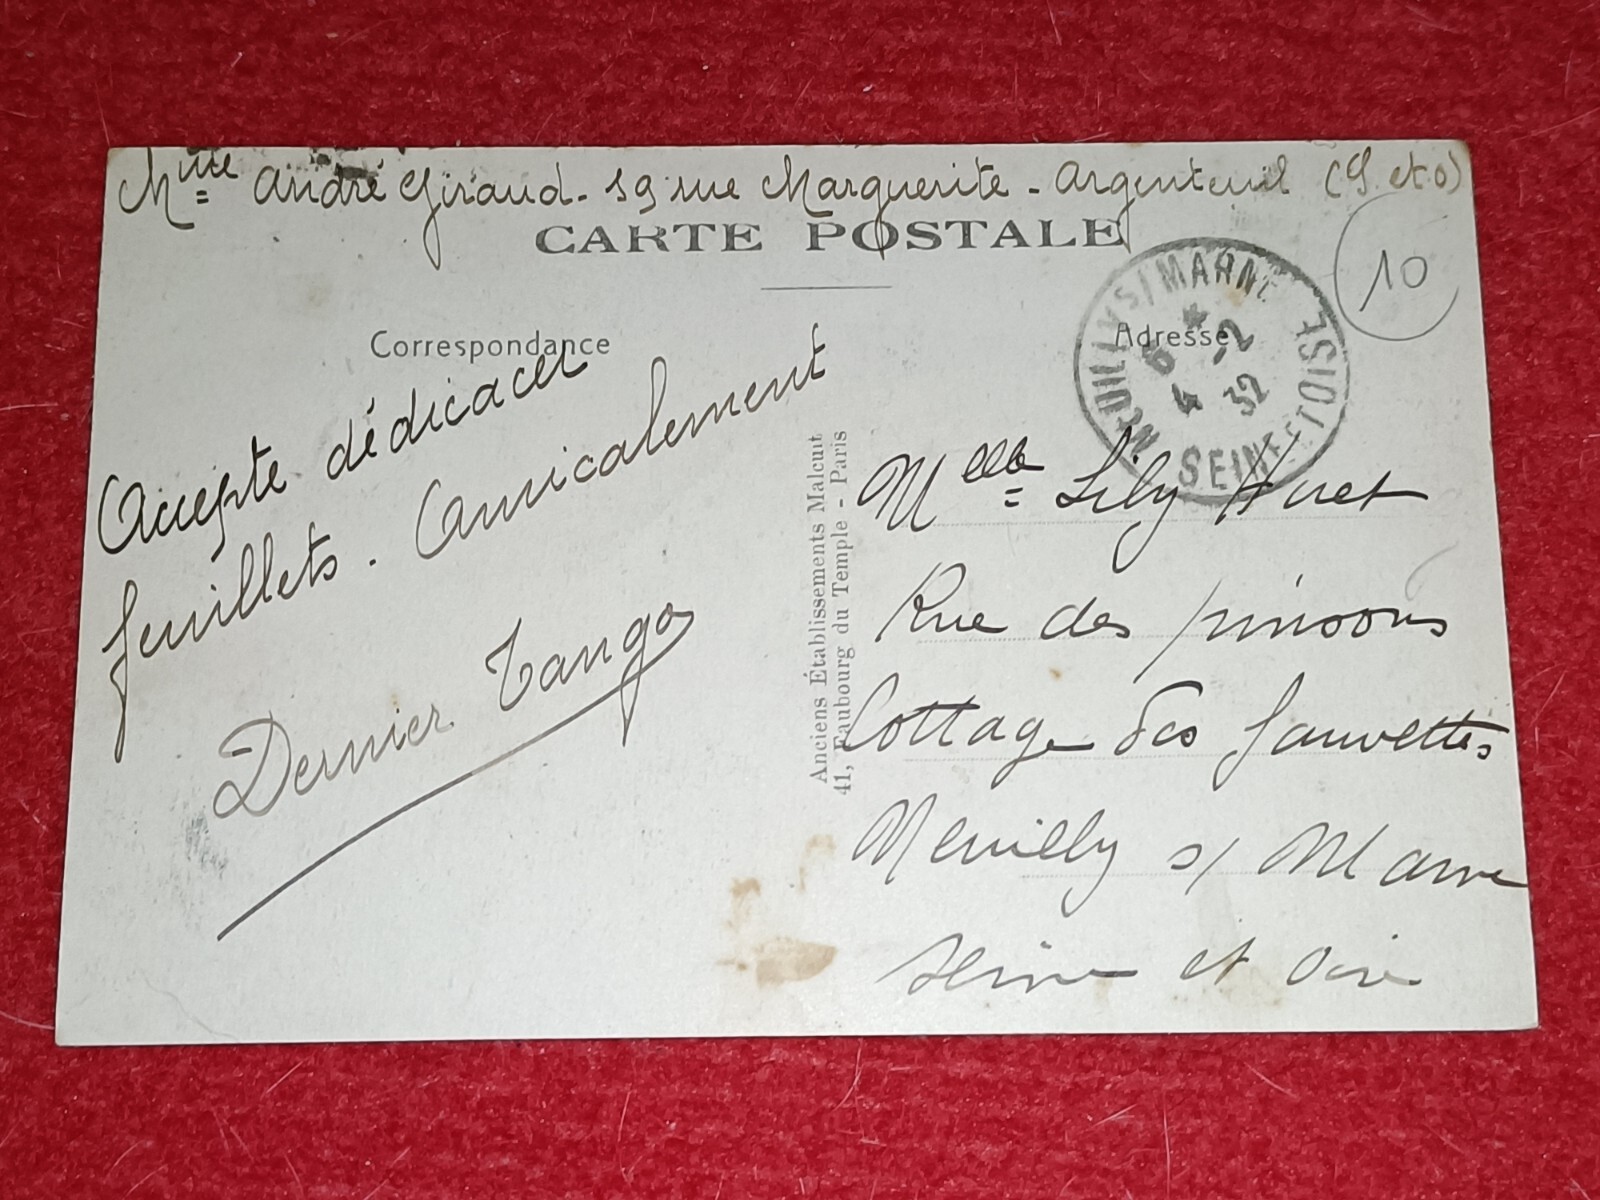 Mme André Giraud - 19 rue Marguerite - Argenteuil (S. et O)
CARTE POSTALE
10
Correspondance
Adresse
NEUILLY S/ MARNE
6 *
4 -2
32
SEINE ET OISE
Accepte dédicacer
feuillets. Amicalement
Dernier Tango
Anciens Établissements Malcuit
41, Faubourg du Temple - Paris
Melle Lily Huret
Rue des pinsons
Cottage des fauvettes
Neuilly s/ Marne
Seine et Oise